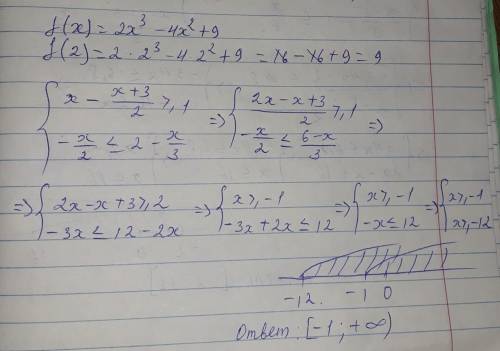 f(x) = 2x³ - 4x² + 9
f(2) = 2 · 2³ - 4 2² + 9 = 16 - 16 + 9 = 9
{ x - (x+3)/2 ≥ 1 => { (2x-x+3)/2 ≥ 1 =>
{ -x/2 ≤ 2 - x/3 { -x/2 ≤ (6-x)/3
=> { 2x-x+3 ≥ 2 => { x ≥ -1 => { x ≥ -1 => { x ≥ -1
{ -3x ≤ 12 - 2x { -3x + 2x ≤ 12 { -x ≤ 12 { x ≥ -12
-12. -1 0
Ответ: [-1; +∞)